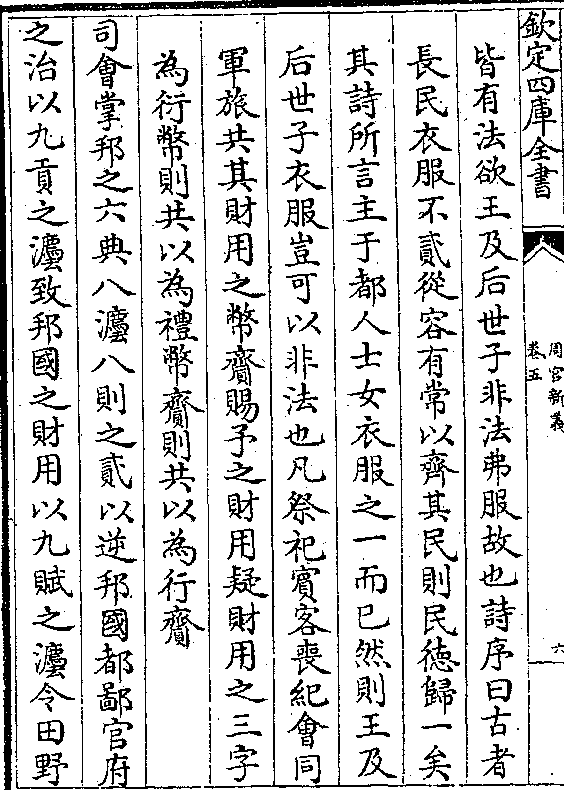 欽定四庫全書
周官新義
卷五
六
皆有法欲王及后世子非法弗服故也詩序曰古者
長民衣服不貳從容有常以齊其民則民徳歸一矣
其詩所言主于都人士女衣服之一而已然則王及
后世子衣服豈可以非法也凡祭祀賓客喪紀會同
軍旅共其財用之幣齎賜予之財用疑財用之三字
為衍幣則共以為禮幣齎則共以為行齎
司會掌邦之六典八灋八則之貳以逆邦國都鄙官府
之治以九貢之灋致邦國之財用以九賦之灋令田野